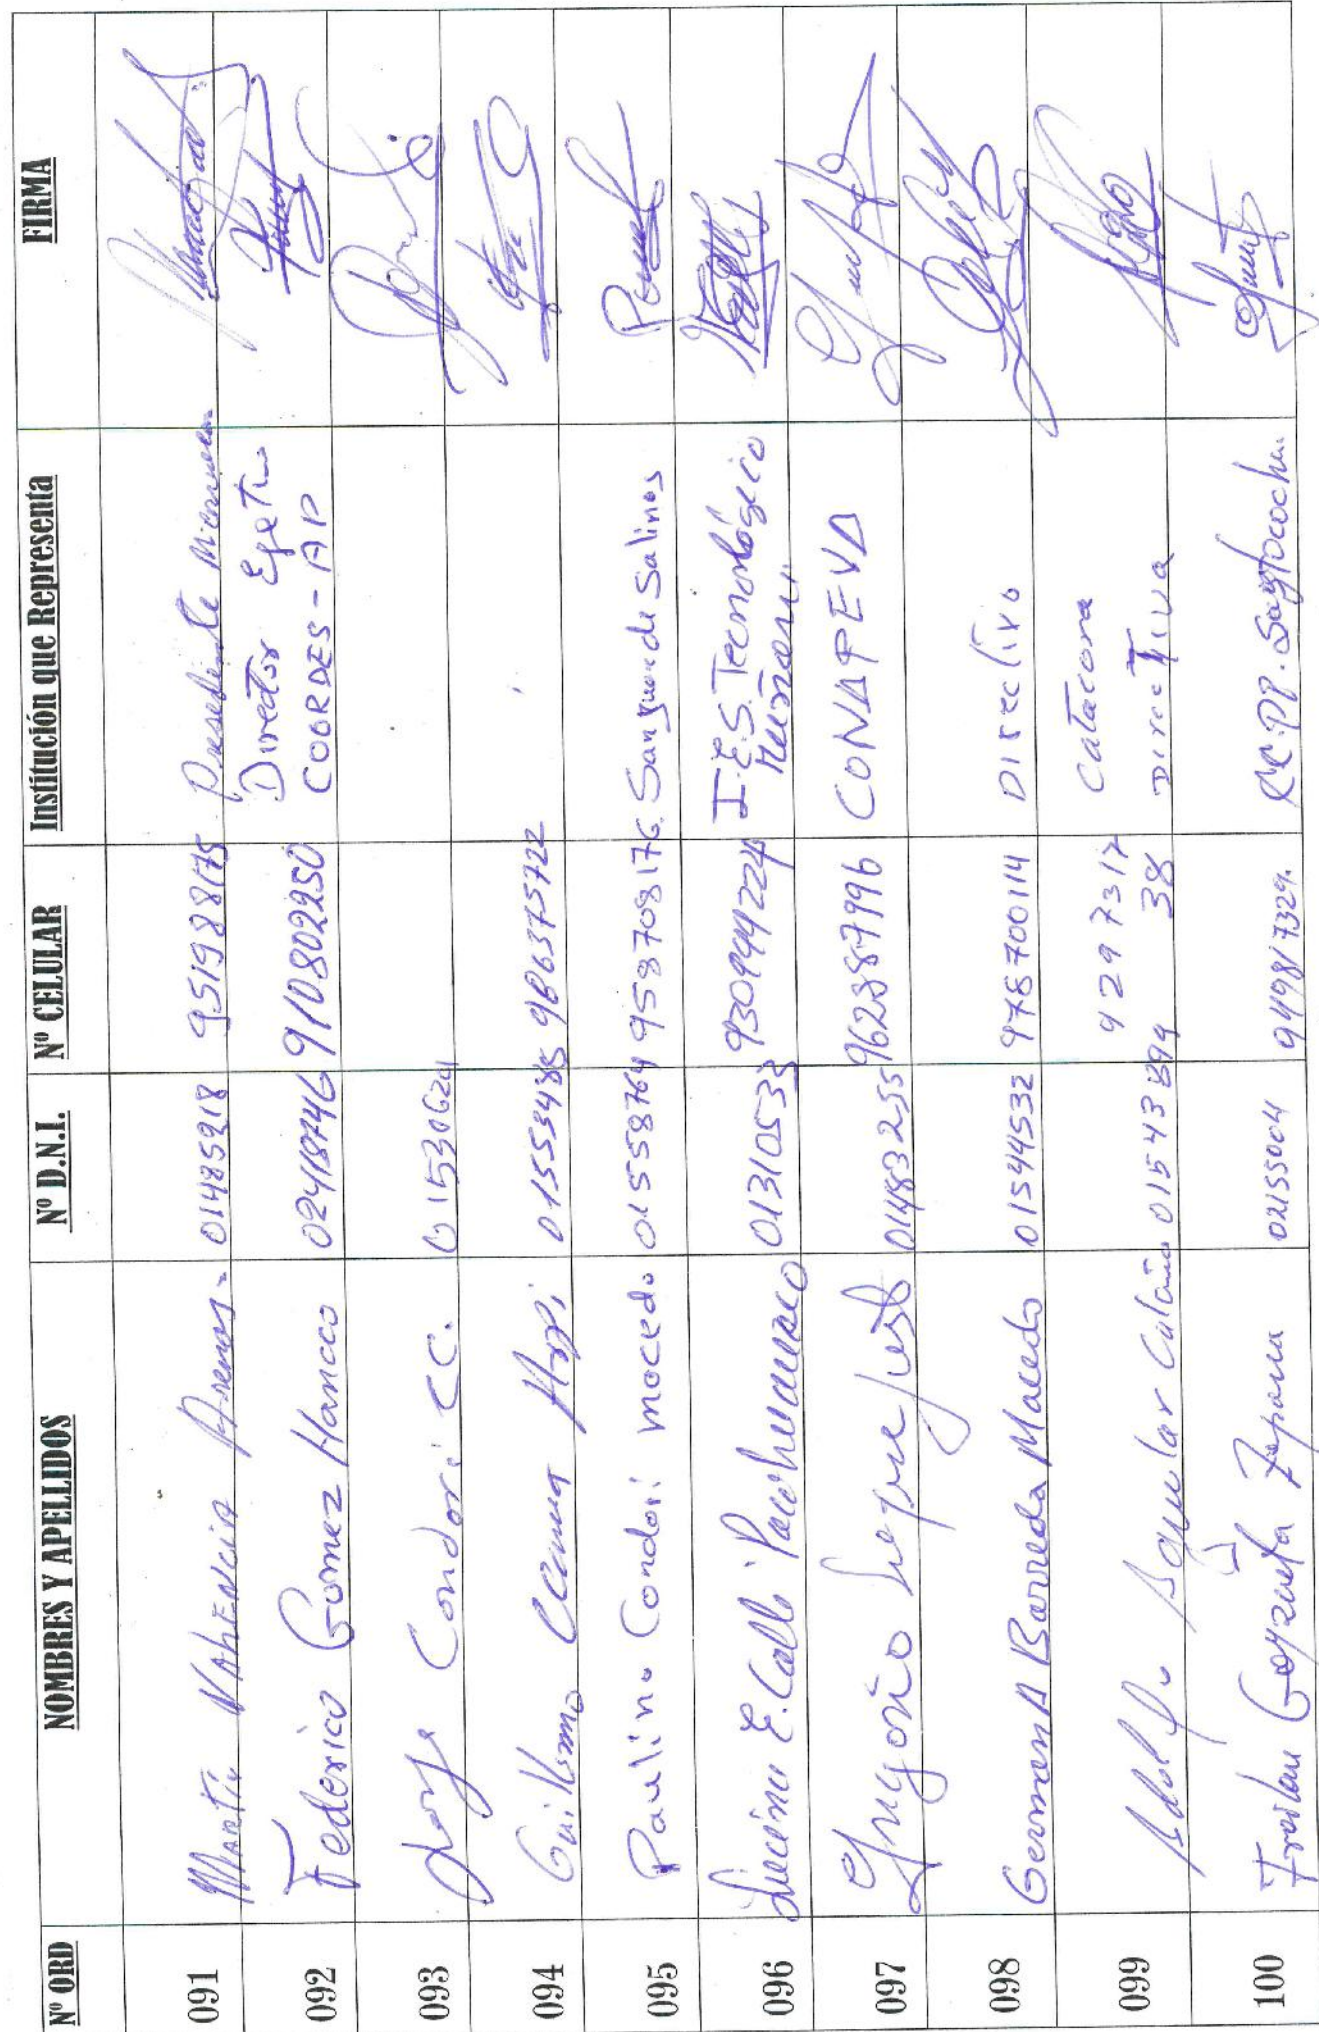 Nº ORD NOMBRES Y APELLIDOS Nº D.N.I. Nº CELULAR Institución que Representa FIRMA
091 Martin VALENCIA 01485918 951988175 Presidente
092 Federico Gomez Hancco 02418746 910802250 Director Egetivo
COORDES - AP
093 Jorge Condori CC. 01530624
094 Guillermo Ccama 01553485 986375722
095 Paulino Condori Mocedo 01558764 958708176 San Juan de Salinas
096 Luciano E. Calli Pacohuanaco 01310533 930944224 I.E.S. Tecnológico
Muñani
097 Gregorio Luque 01483255 962887996 CONAPEVA
098 German A Barreda Macedo 01544532 978700114 Directivo
099 Adolfo Aguilar 01543899 9297317 Catacora
38 Directiva
100 Froilan Goyzueta Zapana 02155004 949817329. CC.PP.